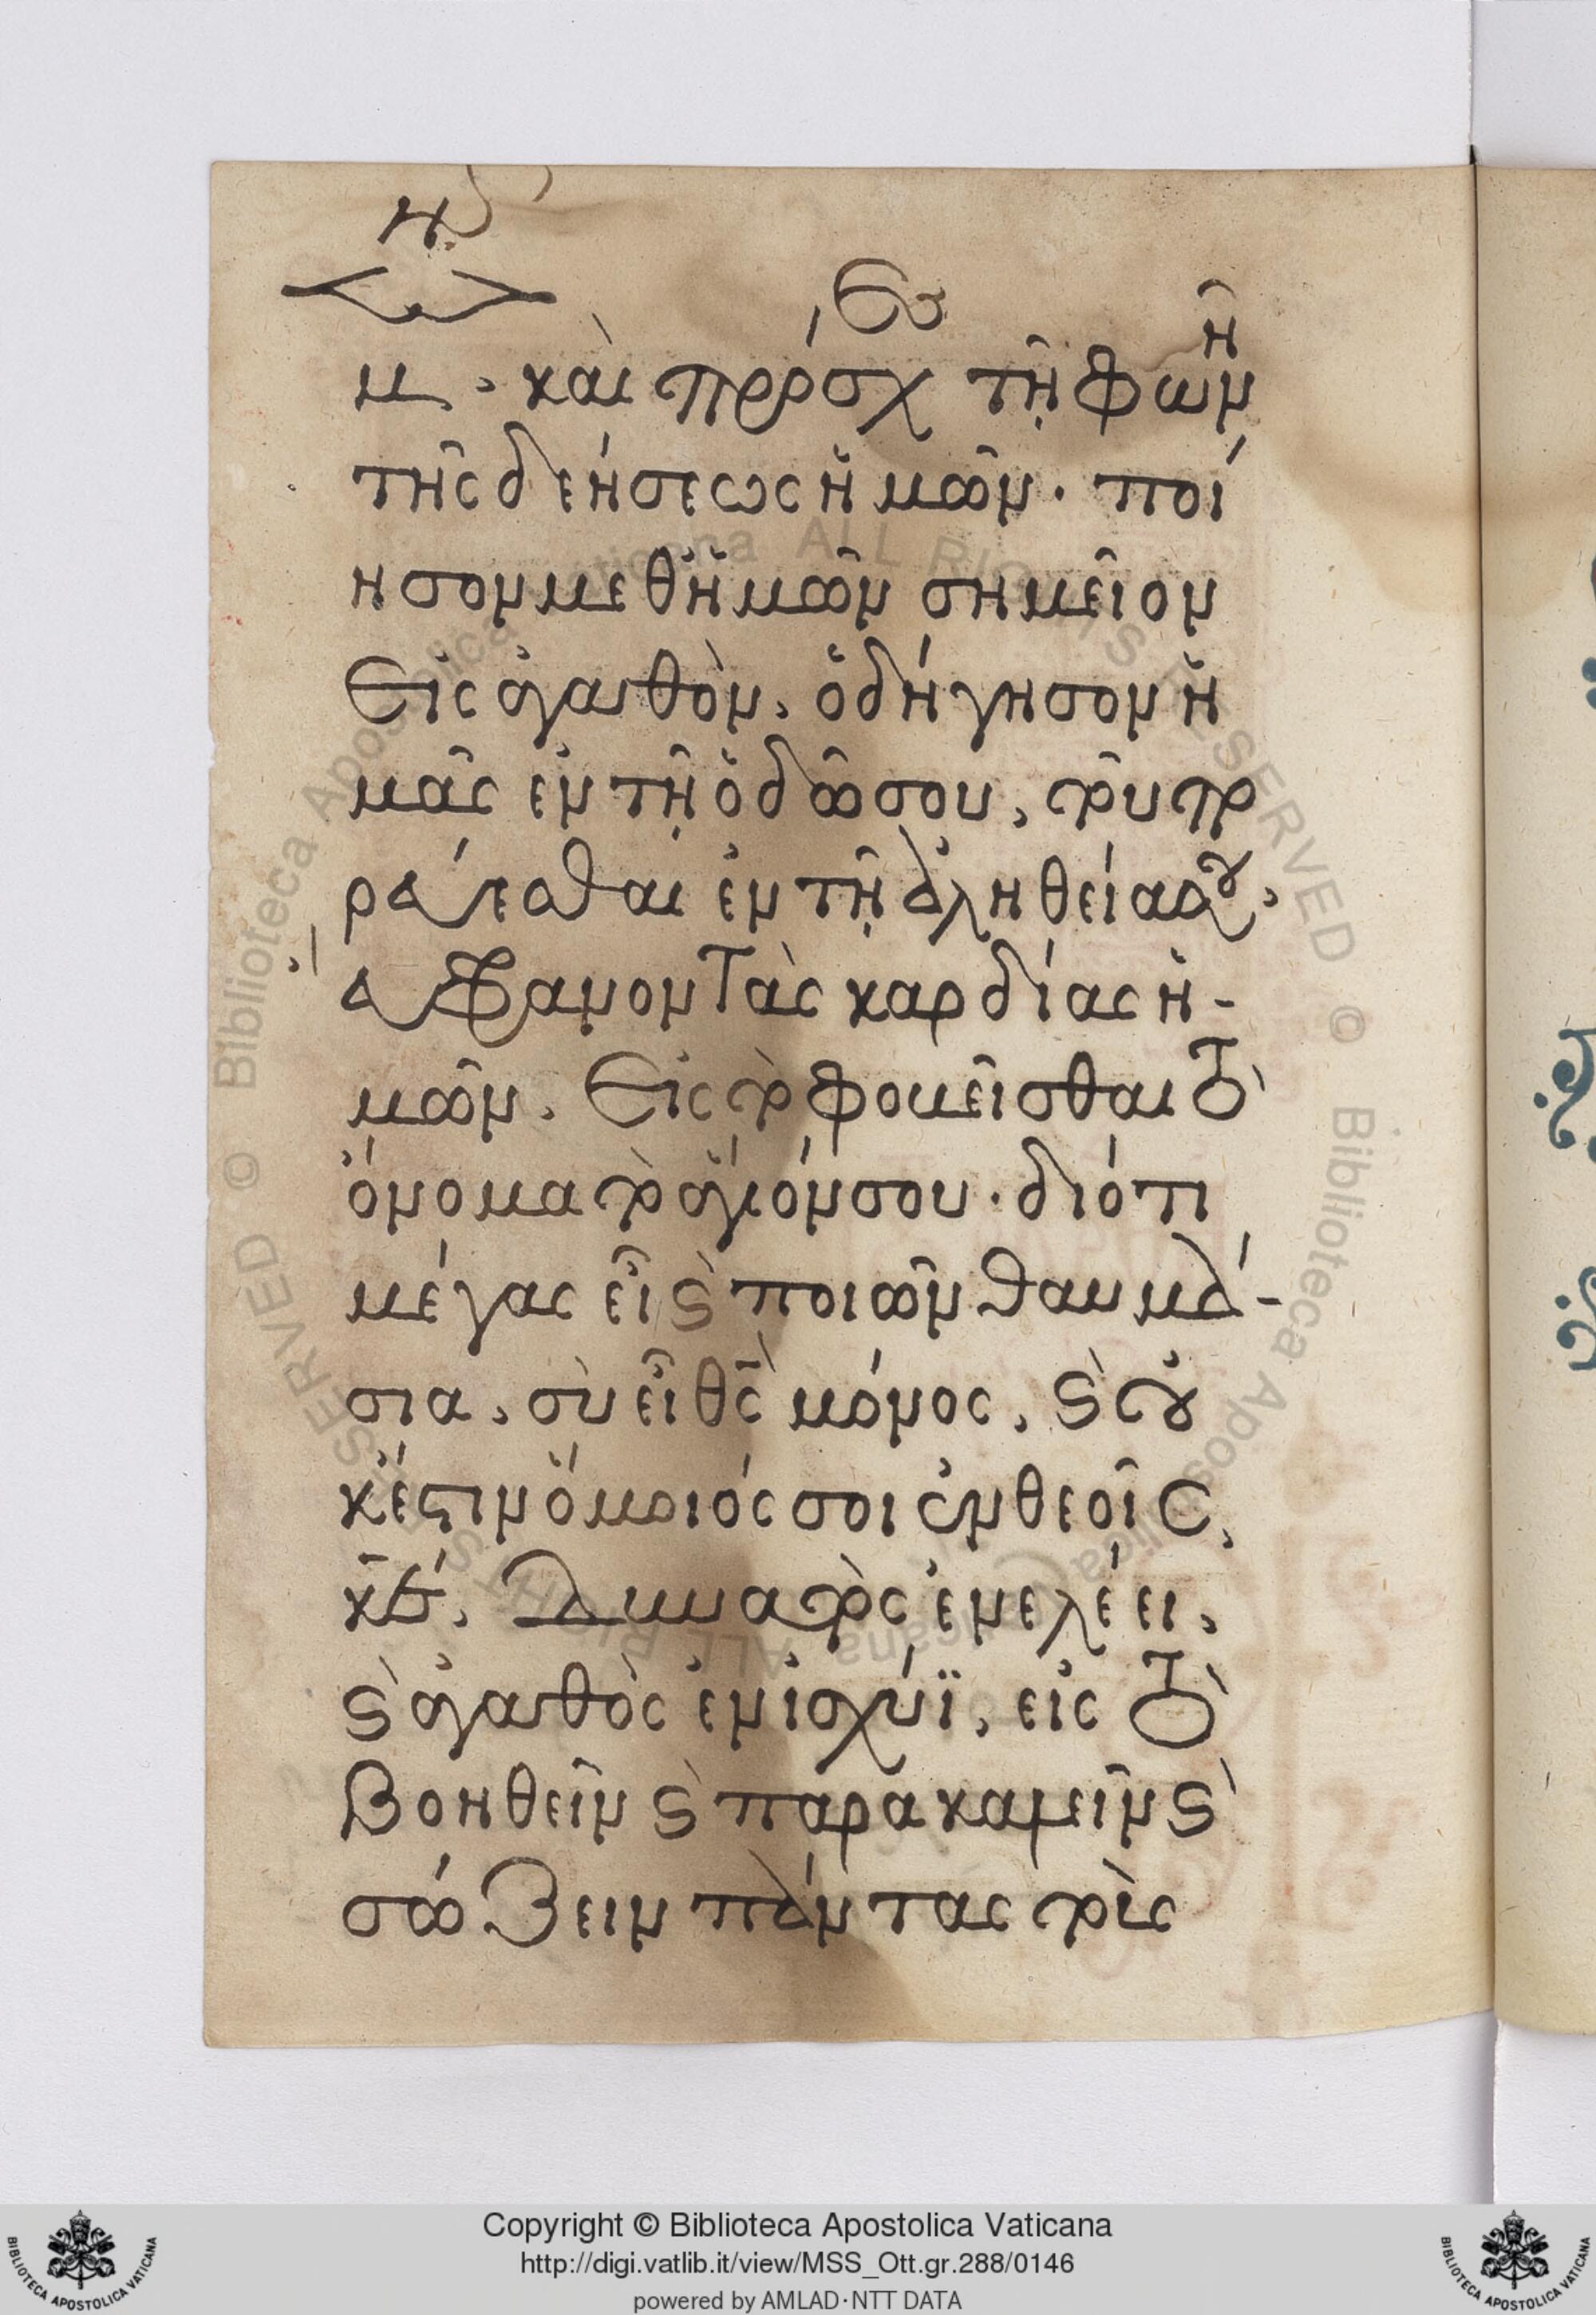 μ. καὶ πρόσχες τῇ φωνῇ
τῆς δεήσεως ἡμῶν. ποί
ησον μεθ ἡμῶν σημεῖον
Εἰς ἀγαθὸν, ὁδήγησον ἡ
μᾶς ἐν τῇ ὁδῶ σου, τοῦ πο
ρεύεσθαι ἐν τῇ ἀληθείᾳ σου,
εὔφρανον τὰς καρδίας ἡ-
μῶν. Εἰς τὸ φοβεῖσθαι τὸ
ὄνομα τὸ ἅγιόν σου. διότι
μέγας εἶ καὶ ποιῶν θαυμά-
σια, σὺ εἶ θς μόνος, καὶ οὐ
κ ἔστιν ὅμοιός σοι ἐν θεοῖς,
κε. Δυνατὸς ἐν ἐλέει,
καὶ ἀγαθὸς ἐν ἰσχύϊ, εἰς τὸ
βοηθεῖν καὶ παρακαλεῖν καὶ
σώζειν πάντας τοὺς
Copyright © Biblioteca Apostolica Vaticana
http://digi.vatlib.it/view/MSS_Ott.gr.288/0146
powered by AMLAD·NTT DATA